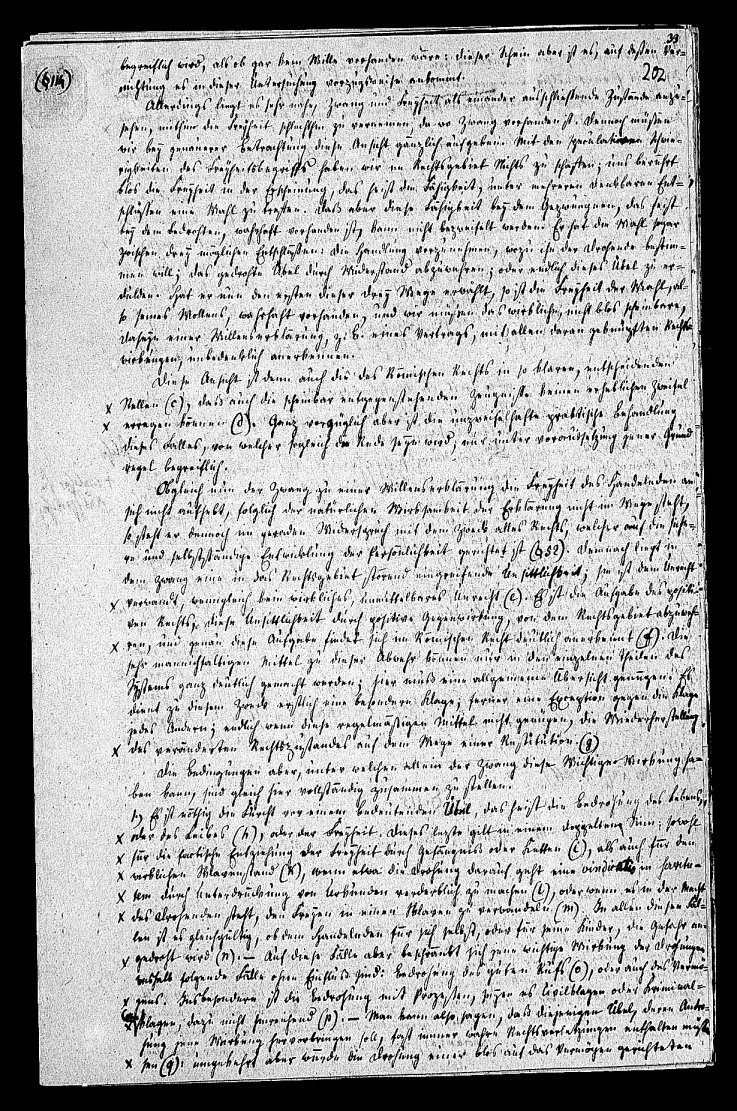 39
202
(§114)
begreiflich wird, als ob gar kein Wille vorhanden wäre: dieser Schein aber ist es, auf dessen Ver-
nichtung es in dieser Untersuchung vorzugsweise ankommt.
Allerdings liegt es sehr nahe, Zwang und Freyheit als einander ausschließende Zustände anzu-
sehen, mithin die Freyheit schlechthin zu verneinen da wo Zwang vorhanden ist. Dennoch müssen
wir bey genauerer Betrachtung diese Ansicht gänzlich aufgeben. Mit den speculativen Schwie-
rigkeiten des Freyheitsbegriffs haben wir im Rechtsgebiet Nichts zu schaffen; uns berührt
blos die Freyheit in der Erscheinung, das heist die Fähigkeit, unter mehreren denkbaren Ent-
schlüssen eine Wahl zu treffen. Daß aber diese Fähigkeit bey dem Gezwungnen, das heist
bey dem Bedrohten, wahrhaft vorhanden ist, kann nicht bezweifelt werden. Er hat die Wahl sogar
zwischen drey möglichen Entschlüssen: die Handlung vorzunehmen, wozu ihn der Drohende bestim-
men will; das gedrohte Übel durch Widerstand abzuwehren; oder endlich dieses Übel zu er-
dulden. Hat er nun den ersten dieser drey Wege erwählt, so ist die Freyheit der Wahl, al-
so seines Wollens, wahrhaft vorhanden, und wir müssen das wirkliche, nicht blos scheinbare,
Daseyn einer Willenserklärung, z. B. eines Vertrags, mit allen daran geknüpften Rechts-
wirkungen, unbedenklich anerkennen.
Diese Ansicht ist denn auch die des Römischen Rechts in so klaren, entscheidenden
x Stellen (c), daß auch die scheinbar entgegenstehenden Zeugnisse keinen erheblichen Zweifel
x erregen können (d). Ganz vorzüglich aber ist die unzweifelhafte praktische Behandlung
dieses Falles, von welcher sogleich die Rede seyn wird, nur unter Voraussetzung jener Grund-
regel begreiflich.
Obgleich nun der Zwang zu einer Willenserklärung die Freyheit des Handelnden an
sich nicht aufhebt, folglich der natürlichen Wirksamkeit der Erklärung nicht im Wege steht,
so steht er dennoch im geraden Widerspruch mit dem Zweck alles Rechts, welcher auf die siche-
re und selbstständige Entwicklung der Persönlichkeit gerichtet ist (§ 52). Demnach liegt in
dem Zwang eine in das Rechtsgebiet störend eingreifende Unsittlichkeit; sie ist dem Unrecht
x verwandt, wenngleich kein wirkliches, unmittelbares Unrecht (e). Es ist die Aufgabe des positi-
ven Rechts, diese Unsittlichkeit durch positive Gegenwirkung, von dem Rechtsgebiet abzuweh-
x ren, und genau diese Aufgabe findet sich im Römischen Recht deutlich anerkannt (f). Die
sehr mannichfaltigen Mittel zu dieser Abwehr können nur in den einzelnen Theilen des
Systems ganz deutlich gemacht werden; hier muß eine allgemeine Übersicht genügen. Es
dient zu diesem Zweck erstlich eine besondere Klage; ferner eine Exception gegen die Klage
jedes Andern; endlich wenn diese regelmäßigen Mittel nicht genügen, die Wiederherstellung
x des veränderten Rechtszustandes auf dem Wege einer Restitution (g)
Die Bedingungen aber, unter welchen allein der Zwang diese wichtige Wirkung ha-
ben kann, sind gleich hier vollständig zusammen zu stellen.
1) Es ist nöthig die Furcht vor einem bedeutenden Übel, das heist die Bedrohung des Lebens,
x oder des Leibes (h), oder der Freyheit. Dieses letzte gilt in einem doppelten Sinn; sowohl
x für die factische Entziehung der Freyheit durch Gefängniß oder Ketten (i), als auch für den
x wirklichen Sklavenstand (k), wenn etwa die Drohung darauf geht eine vindicatio in servitu-
x tem durch Unterdrückung von Urkunden verderblich zu machen (l), oder wenn es in der Macht
x des Drohenden steht, den Freyen in einen Sklaven zu verwandeln (m). In allen diesen Fäl-
len ist es gleichgültig, ob dem Handelnden für sich selbst, oder für seine Kinder, die Gefahr an-
x gedroht wird (n). — Auf diese Fälle aber beschränkt sich jene wichtige Wirkung der Drohungen
weshalb folgende Fälle ohne Einfluß sind: Bedrohung des guten Rufs (o), oder auch des Vermö-
x gens. Insbesondere ist die Bedrohung mit Prozessen, seyen es Civilklagen oder Criminal-
x klagen, dazu nicht hinreichend (p). — Man kann also sagen, daß diejenigen Übel, deren Andro-
hung jene Wirkung hervorbringen soll, fast immer wahre Rechtsverletzungen enthalten müs-
x sen (q): umgekehrt aber würde die Drohung einer blos auf das Vermögen gerichteten